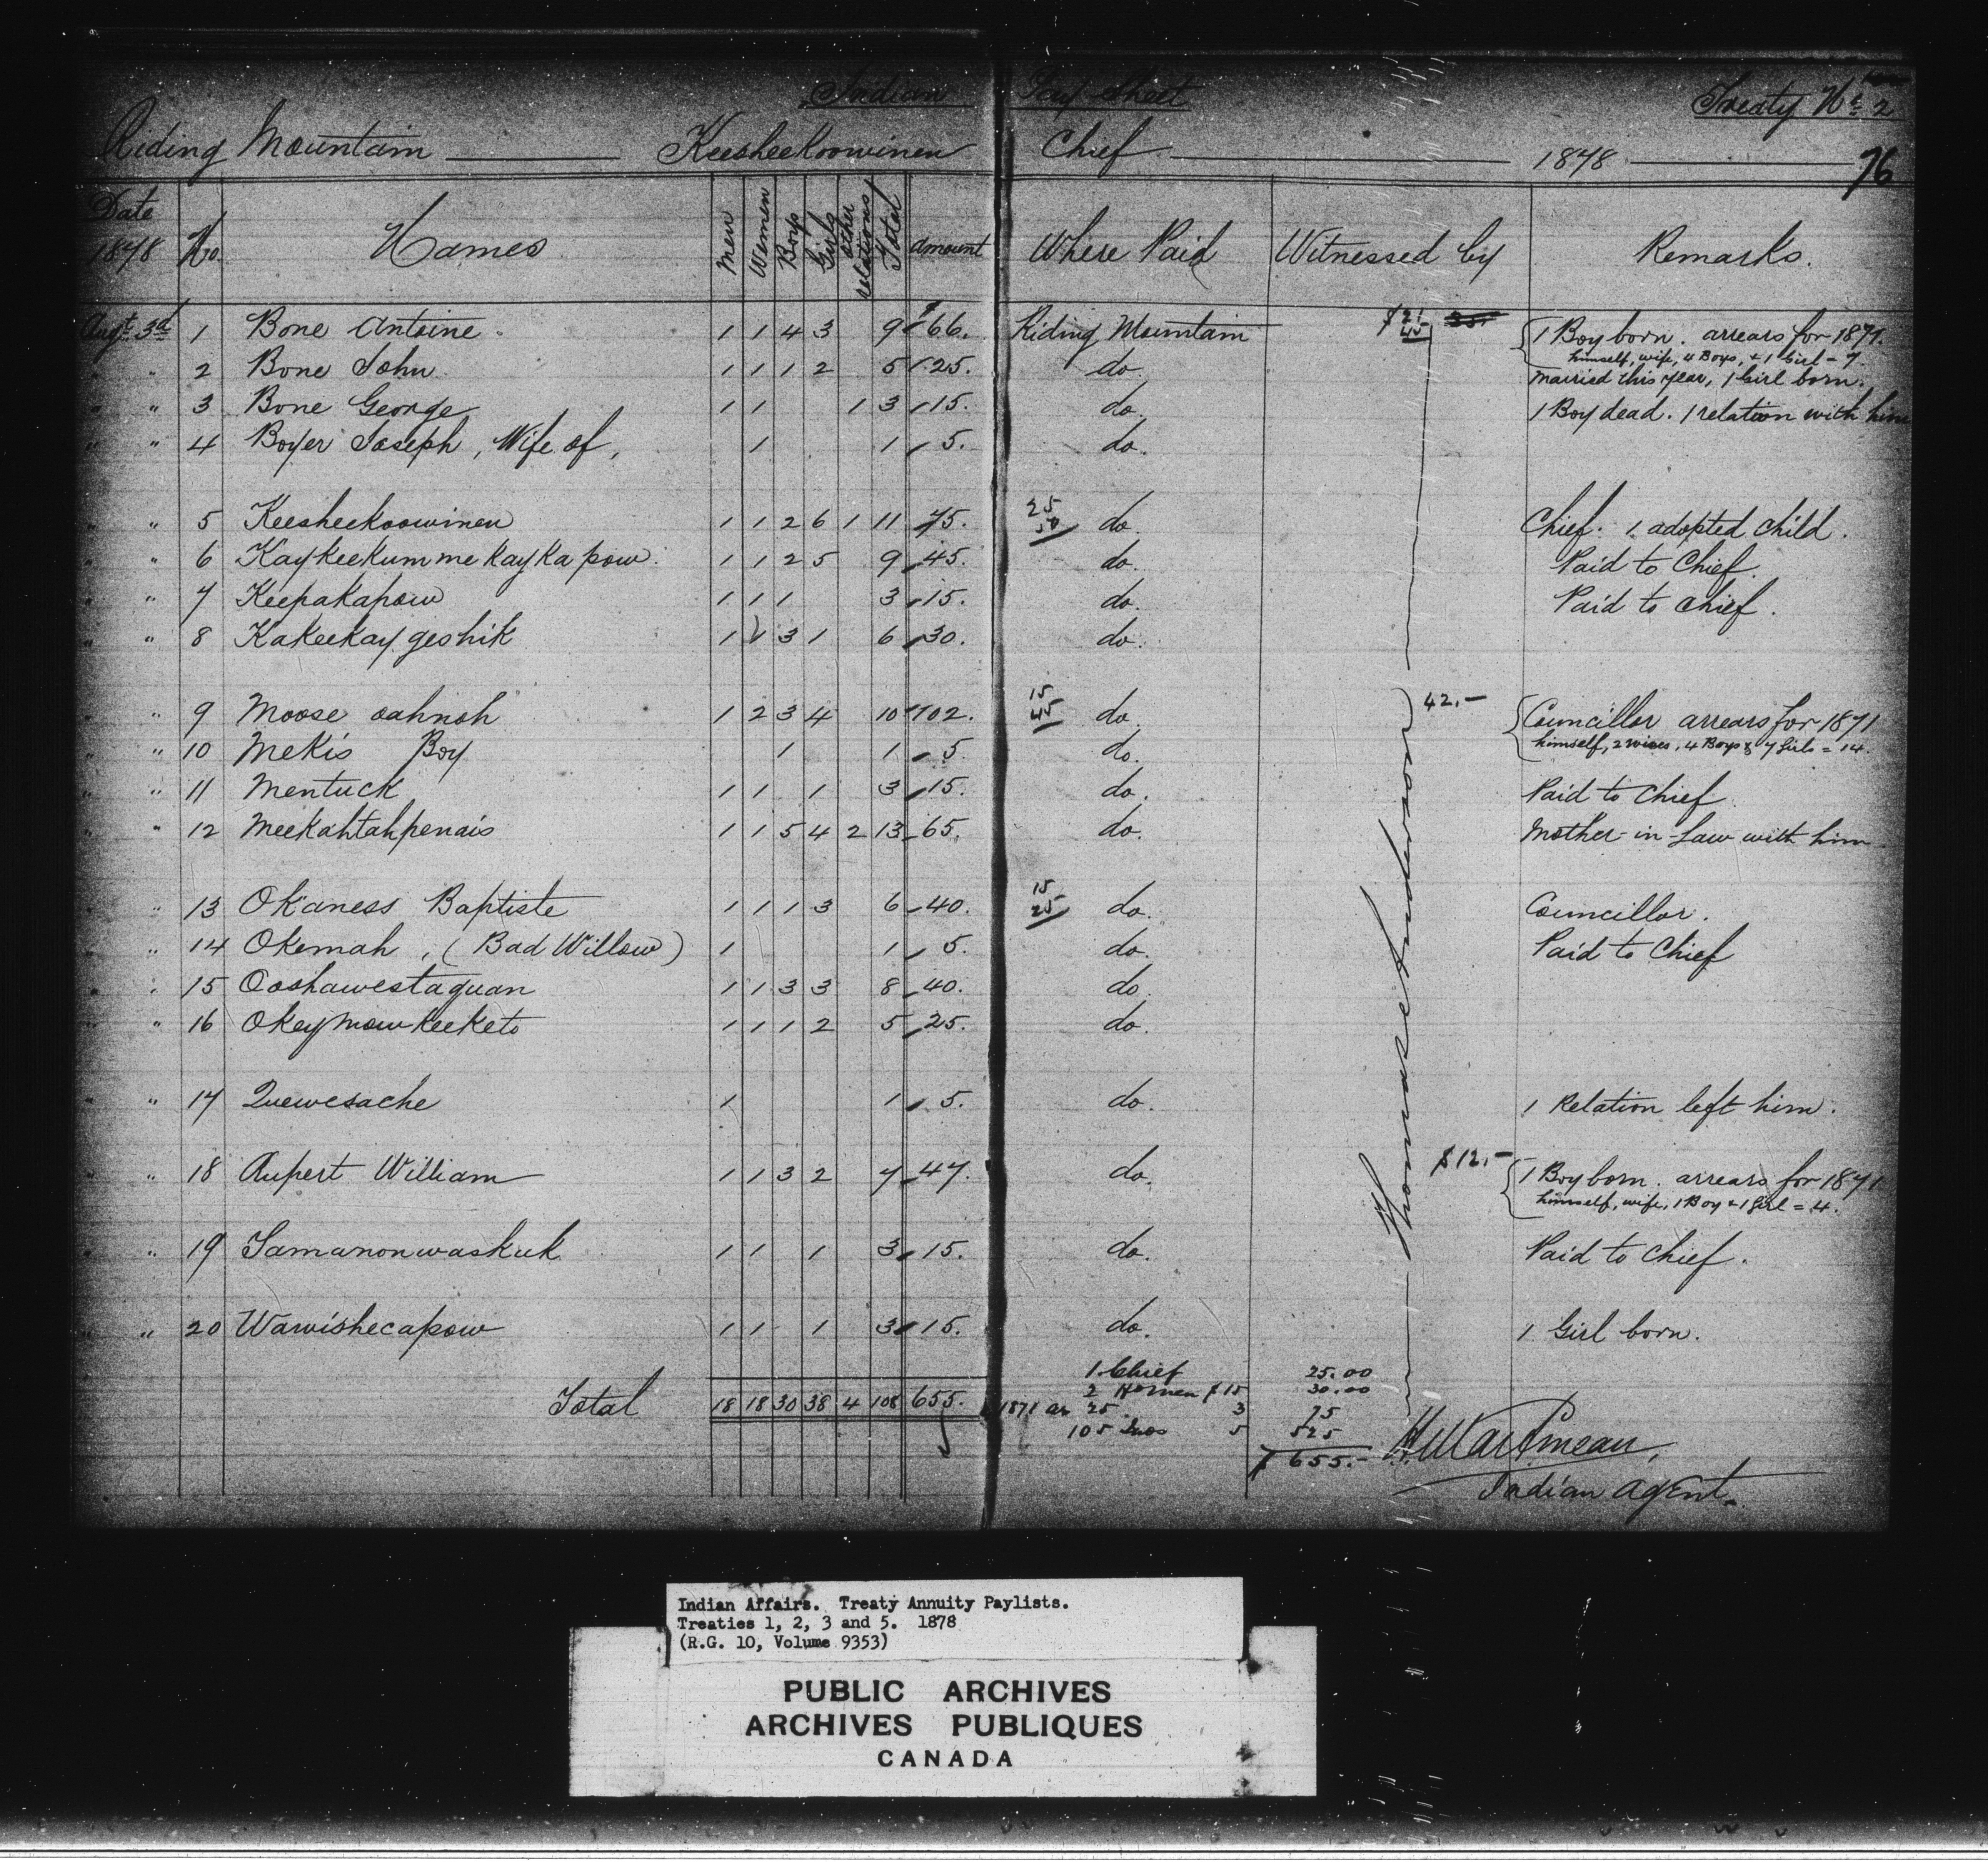 Indian Pay Sheet Treaty No. 2
Riding Mountain Keesheekoowinen Chief 1878 76
Date 1878 No. Names Men Women Boys Girls other relations Total amount Where Paid Witnessed by Remarks.
Augt. 3d 1 Bone Antoine. 1 1 4 3 9 $66. Riding Mountain $21 45 {1 Boy born. arrears for 1871.
himself, wife, 4 Boys, & 1 Girl = 7.
" " 2 Bone John 1 1 1 2 5 25. do. married this year, 1 Girl born.
" " 3 Bone George 1 1 1 3 15. do. 1 Boy dead. 1 relation with him
" " 4 Boyer Joseph, Wife of, 1 1 5. do.
" " 5 Keesheekoowinen 1 1 2 6 1 11 75. 25 50 do. Chief. 1 adopted child.
" " 6 Kaykeekummekaykapow. 1 1 2 5 9 45. do. Paid to Chief.
" " 7 Keepakapow 1 1 1 3 15. do. Paid to Chief.
" " 8 Kakeekaygeshik 1 1 3 1 6 30. do.
" 9 Moose oahnoh 1 2 3 4 10 102. 15 45 do. 42.- {Councillor arrears for 1871
himself, 2 wives, 4 Boys & 7 Girls = 14.
" 10 Mekis Boy 1 1 5. do.
" " 11 Mentuck 1 1 1 3 15. do. Paid to Chief
" " 12 Meekahtahpenais 1 1 5 4 2 13 65. do. Mother-in-Law with him
" " 13 Okaness Baptiste 1 1 1 3 6 40. 15 25 do. Councillor.
" " 14 Okemah, (Bad Willow) 1 1 5. do. Paid to Chief
" " 15 Ooshawestaquan 1 1 3 3 8 40. do.
" " 16 Okeymowkeeketo 1 1 1 2 5 25. do.
" " 17 Quewesache 1 1 5. do. 1 Relation left him.
" " 18 Rupert William 1 1 3 2 7 47. do. $12.- {1 Boy born. arrears for 1871
himself, wife, 1 Boy & 1 Girl = 4.
" " 19 Samanonwaskuk 1 1 1 3 15. do. Paid to Chief.
" " 20 Wawishecapow 1 1 1 3 15. do. 1 Girl born.
Thomas Anderson
1 Chief 25.00
2 H.men $15 30.00
Total 18 18 30 38 4 108 655. 1871 ar 25 3 75
105 Inds 5 525
$655.-
H. Martineau,
Indian Agent.
Indian Affairs. Treaty Annuity Paylists.
Treaties 1, 2, 3 and 5. 1878
(R.G. 10, Volume 9353)
PUBLIC ARCHIVES
ARCHIVES PUBLIQUES
CANADA